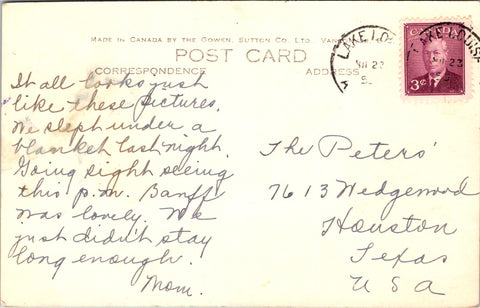 MADE IN CANADA BY THE GOWEN, SUTTON CO. LTD. VAN
POST CARD
CORRESPONDENCE
ADDRESS
LAKE LO
3¢
It all looks just
like these pictures.
We slept under a
blanket last night.
Going sight seeing
this p.m. Banff
was lovely. We
just didn't stay
long enough.
Mom.
The Peters'
7613 Wedgewood
Houston
Texas
USA